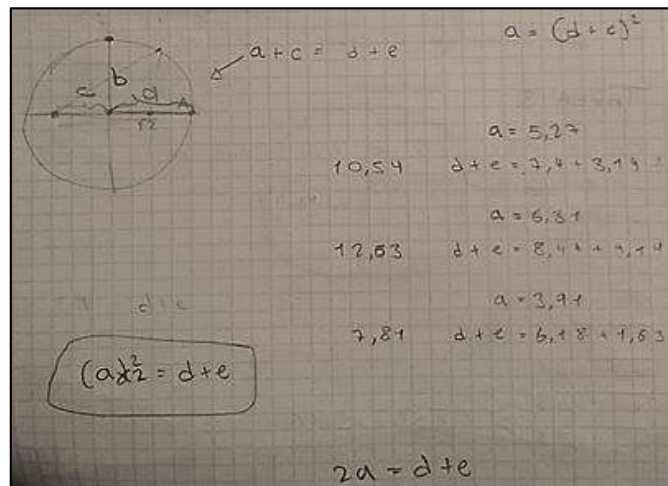 a = (d + e)²
a + c = d + e
b
c
a
r2
a = 5,27
10,54 d + e = 7,4 + 3,14
a = 6,31
12,63 d + e = 8,44 + 4,19
a = 3,91
7,81 d + e = 6,18 + 1,63
d + e
(a)2 = d + e
2a = d + e